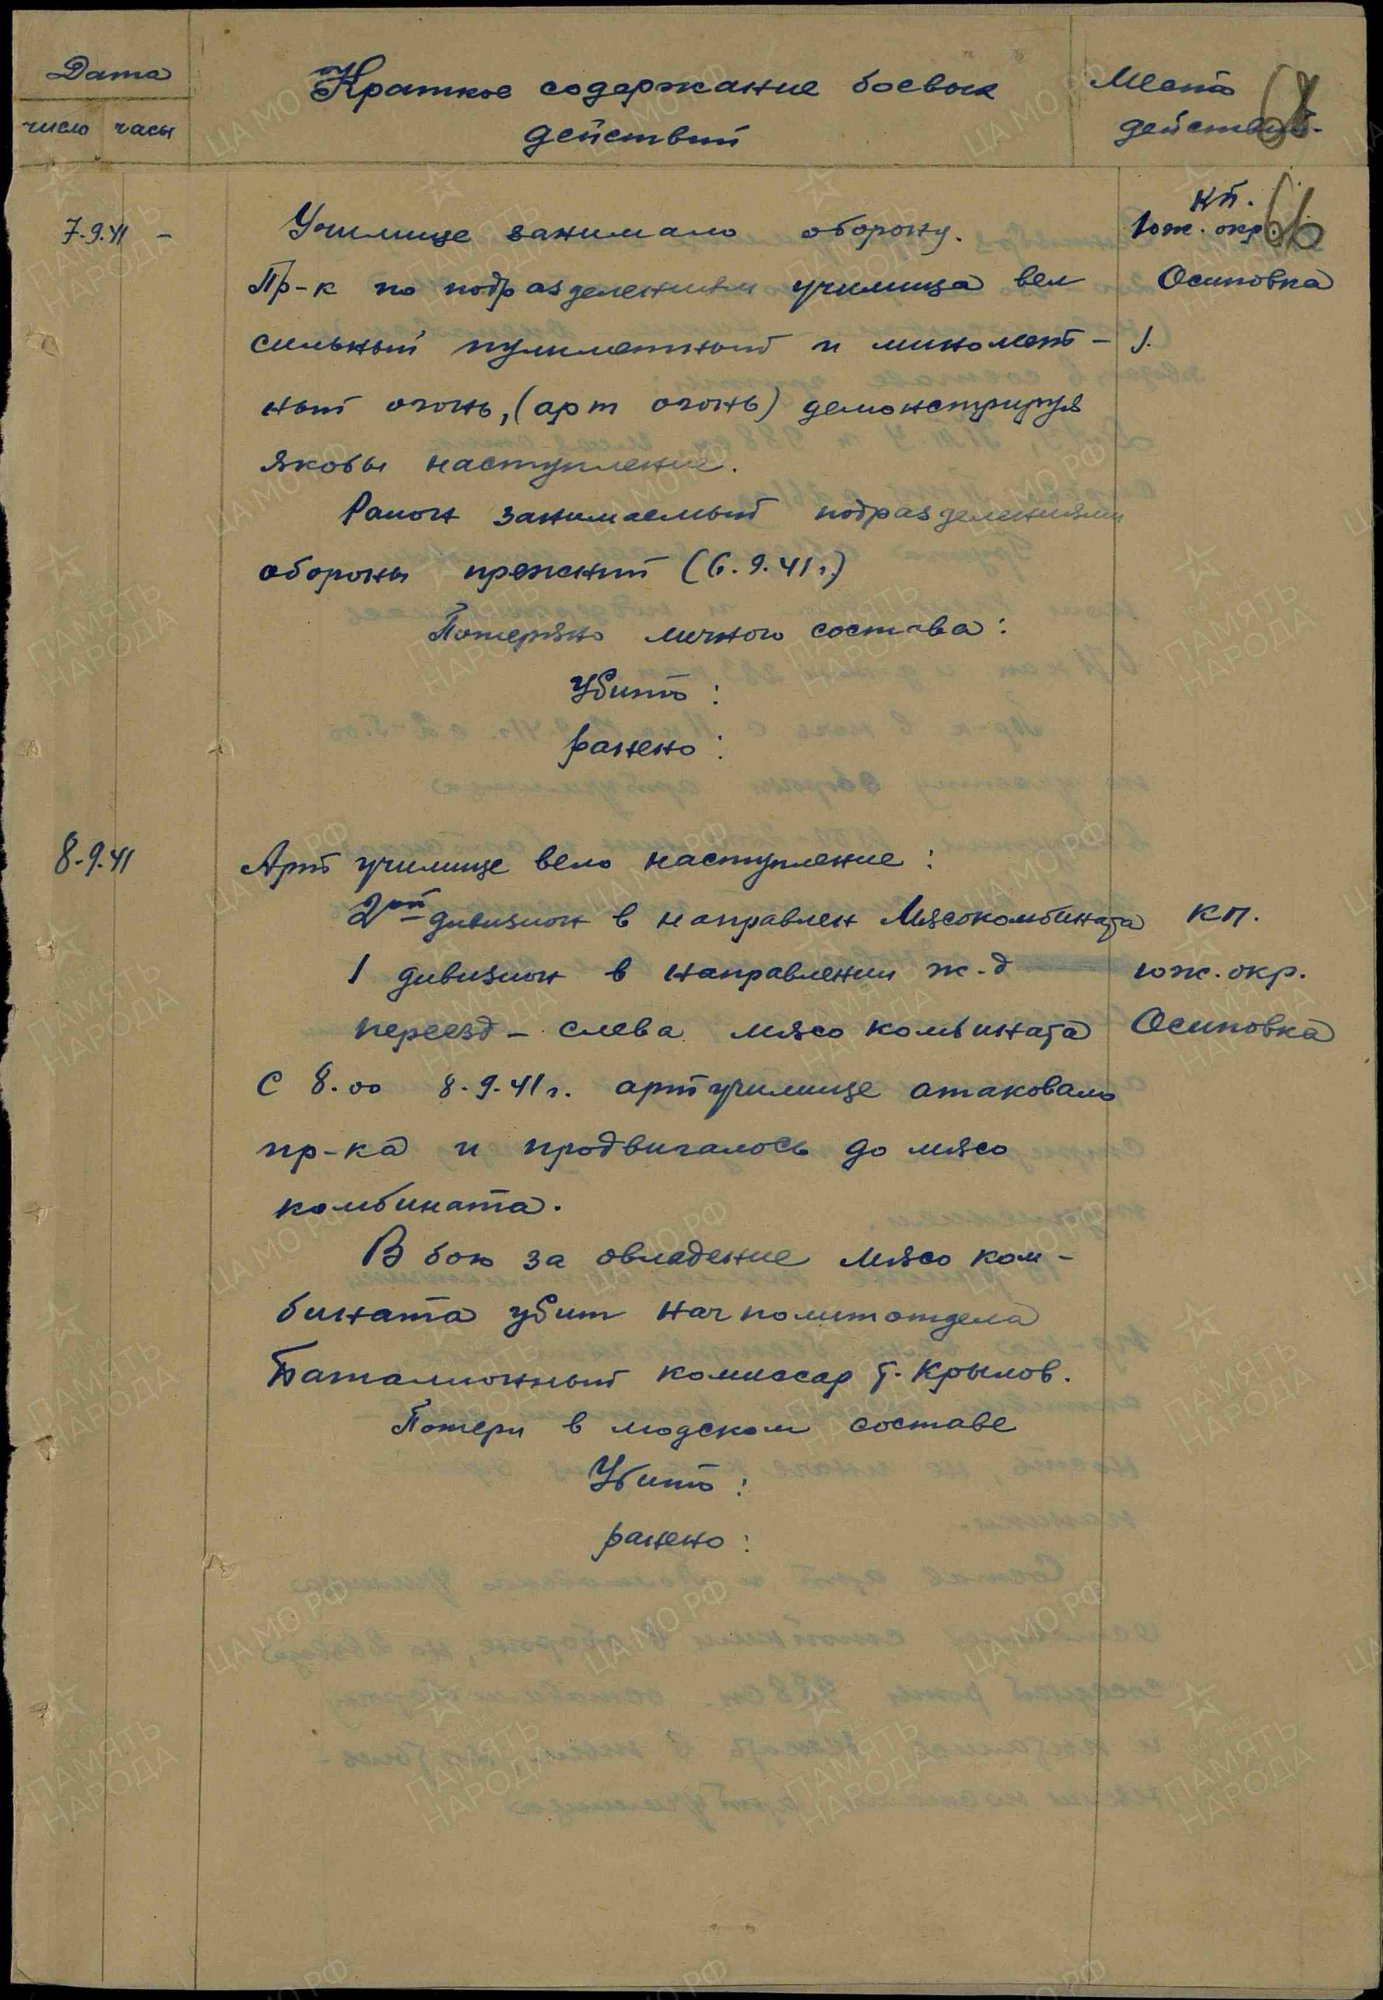 Дата
число часы
Краткое содержание боевых
действий
Место
действий.
66
7.9.41 –
Училище занимало оборону.
Пр-к по подразделениям училища вел
сильный пулиметный и миномет-
ный огонь, (арт огонь) демонстрируя
якобы наступление.
Район занимаемый подразделениями
обороны прежний (6.9.41г.)
Потеряно личного состава:
Убито:
ранено:
КП.
Юж. окр.
Осиновка
8.9.41
Арт училище вело наступление:
2ой дивизион в направлен Мясокомбината
1 дивизион в направлении ж.д
переезд – слева мясо комбината
С 8.00 8.9.41г. артучилище атаковало
пр-ка и продвигалось до мясо
комбината.
В бою за овладение мясо ком-
бината убит нач политотдела
Баталионный комиссар т. Крылов.
Потери в людском составе
Убито:
ранено:
КП.
юж. окр.
Осиновка
ЦА МО РФ
ПАМЯТЬ
НАРОДА